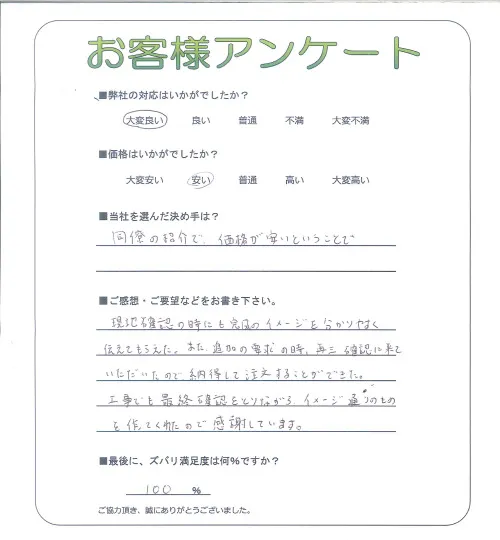 お客様アンケート
■弊社の対応はいかがでしたか？
大変良い 良い 普通 不満 大変不満
■価格はいかがでしたか？
大変安い 安い 普通 高い 大変高い
■当社を選んだ決め手は？
同僚の紹介で、価格が安いということで
■ご感想・ご要望などをお書き下さい。
現地確認の時にも完成のイメージを分かりやすく
伝えてもらえた。また、追加の要求の時、再三確認に来て
いただいたので、納得して注文することができた。
工事でも最終確認をとりながら、イメージ通りのもの
を作ってくれたので感謝しています。
■最後に、ズバリ満足度は何%ですか？
100 %
ご協力頂き、誠にありがとうございました。